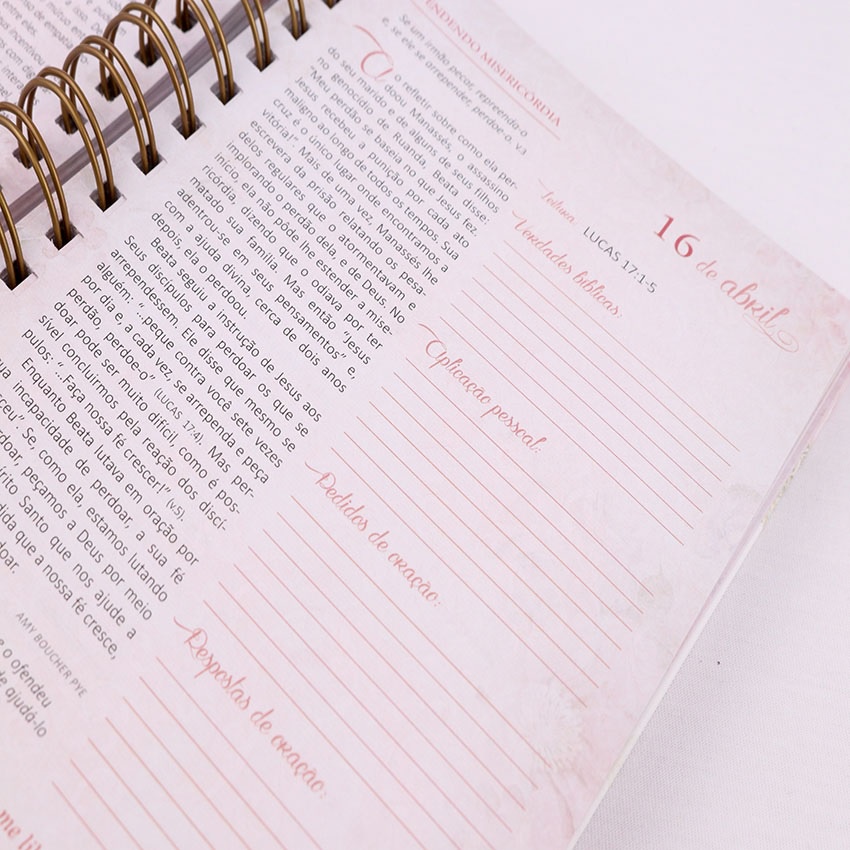 16 de abril
Leitura: LUCAS 17:1-5
Verdades bíblicas:
Aplicação pessoal:
Pedidos de oração:
Respostas de oração:
ENDENDO MISERICÓRDIA
Se um irmão pecar, repreenda-o
e, se ele se arrepender, perdoe-o. v.3
Ao refletir sobre como ela per-
doou Manassés, o assassino
do seu marido e de alguns de seus filhos
no genocídio de Ruanda, Beata disse:
"Meu perdão se baseia no que Jesus fez.
Jesus recebeu a punição por cada ato
maligno ao longo de todos os tempos. Sua
cruz é o único lugar onde encontramos a
vitória!". Mais de uma vez, Manassés lhe
escrevera da prisão relatando os pesa-
delos regulares que o atormentavam e
implorando o perdão dela, e de Deus. No
início, ela não pôde lhe estender a mise-
ricórdia, dizendo que o odiava por ter
matado sua família. Mas então "Jesus
adentrou-se em seus pensamentos" e,
com a ajuda divina, cerca de dois anos
depois, ela o perdoou.
Beata seguiu a instrução de Jesus aos
Seus discípulos para perdoar os que se
arrependessem. Ele disse que mesmo se
alguém: "...peque contra você sete vezes
por dia e, a cada vez, se arrependa e peça
perdão, perdoe-o" (LUCAS 17:4). Mas per-
doar pode ser muito difícil, como é pos-
sível concluirmos pela reação dos discí-
pulos: "...Faça nossa fé crescer!" (v.5).
Enquanto Beata lutava em oração por
ua incapacidade de perdoar, a sua fé
ceu". Se, como ela, estamos lutando
doar, peçamos a Deus por meio
írito Santo que nos ajude a
dida que a nossa fé cresce,
doar.
AMY BOUCHER PYE
e o ofendeu
de ajudá-lo
me li